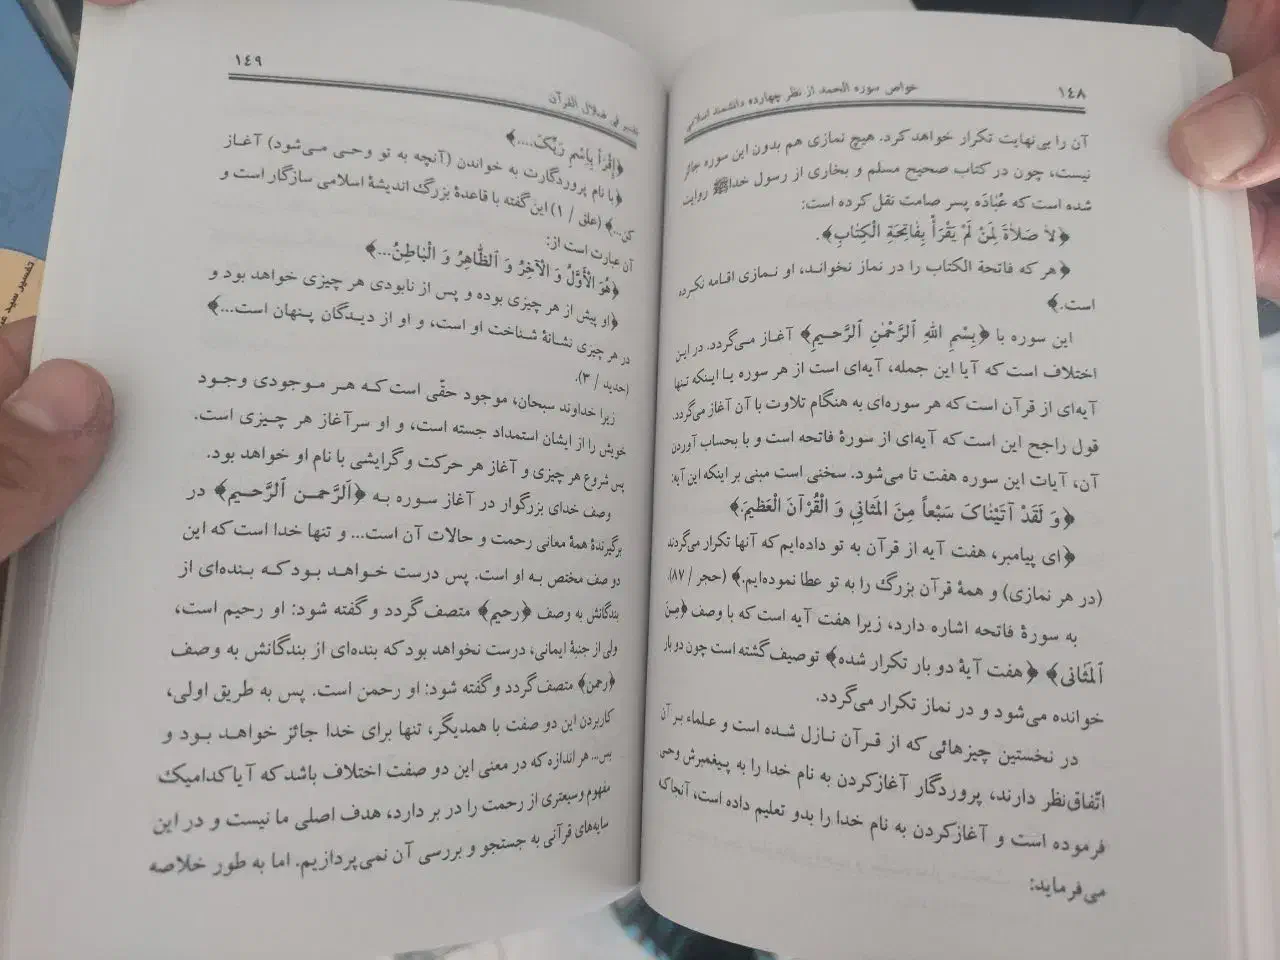 ١٤٨
خواص سوره الحمد از نظر چهارده دانشمند اسلامی
آن را بی‌نهایت تکرار خواهد کرد. هیچ نمازی هم بدون این سوره جائز
نیست، چون در کتاب صحیح مسلم و بخاری از رسول خداﷺ روایت
شده است که عُبادَه پسر صامت نقل کرده است:
﴿لاٰ صَلاٰةَ لِمَنْ لَمْ یَقْرَأْ بِفٰاتِحَةِ الْکِتٰابِ﴾.
﴿هر که فاتحة الکتاب را در نماز نخواند، او نمازی اقامه نکرده
است.﴾
این سوره با ﴿بِسْمِ اللهِ اَلرَّحْمٰنِ اَلرَّحـیمِ﴾ آغاز می‌گردد. در این
اختلاف است که آیا این جمله، آیه‌ای است از هر سوره یا اینکه تنها
آیه‌ای از قرآن است که هر سوره‌ای به هنگام تلاوت با آن آغاز می‌گردد.
قول راجح این است که آیه‌ای از سورهٔ فاتحه است و با بحساب آوردن
آن، آیات این سوره هفت تا می‌شود. سخنی است مبنی بر اینکه این آیه:
﴿وَ لَقَدْ آتَیْنٰاکَ سَبْعاً مِنَ الْمَثانیٖ وَ الْقُرْآنَ الْعَظیمَ.﴾
﴿ای پیامبر، هفت آیه از قرآن به تو داده‌ایم که آنها تکرار می‌گردند
(در هر نمازی) و همهٔ قرآن بزرگ را به تو عطا نموده‌ایم.﴾ (حجر / ٨٧).
به سورهٔ فاتحه اشاره دارد، زیرا هفت آیه است که با وصف ﴿مِنَ
اَلْمَثٰانی﴾ ﴿هفت آیهٔ دو بار تکرار شده﴾ توصیف گشته است چون دو بار
خوانده می‌شود و در نماز تکرار می‌گردد.
در نخستین چیزهائی که از قرآن نازل شده است و علماء بر آن
اتّفاق‌نظر دارند، پروردگار آغازکردن به نام خدا را به پیغمبرش وحی
فرموده است و آغازکردن به نام خدا را بدو تعلیم داده است، آنجاکه
می‌فرماید:
١٤٩
تفسیر فی ضلال القرآن
﴿اِقْرَأ بِاِسْمِ رَبِّکَ....﴾
﴿با نام پروردگارت به خواندن (آنچه به تو وحی می‌شود) آغاز
کن...﴾ (علق / ١) این گفته با قاعدهٔ بزرگ اندیشهٔ اسلامی سازگار است و
آن عبارت است از:
﴿هُوَ الْأَوَّلُ وَ الْآخِرُ وَ اَلظّٰاهِرُ وَ الْبٰاطِنُ...﴾
﴿او پیش از هر چیزی بوده و پس از نابودی هر چیزی خواهد بود و
در هر چیزی نشانهٔ شناخت او است، و او از دیدگان پنهان است...﴾
(حدید / ٣).
زیرا خداوند سبحان، موجود حقّی است که هر موجودی وجود
خویش را از ایشان استمداد جسته است، و او سرآغاز هر چیزی است.
پس شروع هر چیزی و آغاز هر حرکت و گرایشی با نام او خواهد بود.
وصف خدای بزرگوار در آغاز سوره به ﴿اَلرَّحمـن اَلرَّحـیم﴾ در
برگیرندهٔ همهٔ معانی رحمت و حالات آن است... و تنها خدا است که این
دو صف مختص به او است. پس درست خواهد بود که بنده‌ای از
بندگانش به وصف ﴿رحیم﴾ متصف گردد و گفته شود: او رحیم است،
ولی از جنبهٔ ایمانی، درست نخواهد بود که بنده‌ای از بندگانش به وصف
﴿رحمن﴾ متصف گردد و گفته شود: او رحمن است. پس به طریق اولی،
کاربردن این دو صفت با همدیگر، تنها برای خدا جائز خواهد بود و
بس... هر اندازه که در معنی این دو صفت اختلاف باشد که آیا کدامیک
مفهوم وسیعتری از رحمت را در بر دارد، هدف اصلی ما نیست و در این
سایه‌های قرآنی به جستجو و بررسی آن نمی‌پردازیم. اما به طور خلاصه